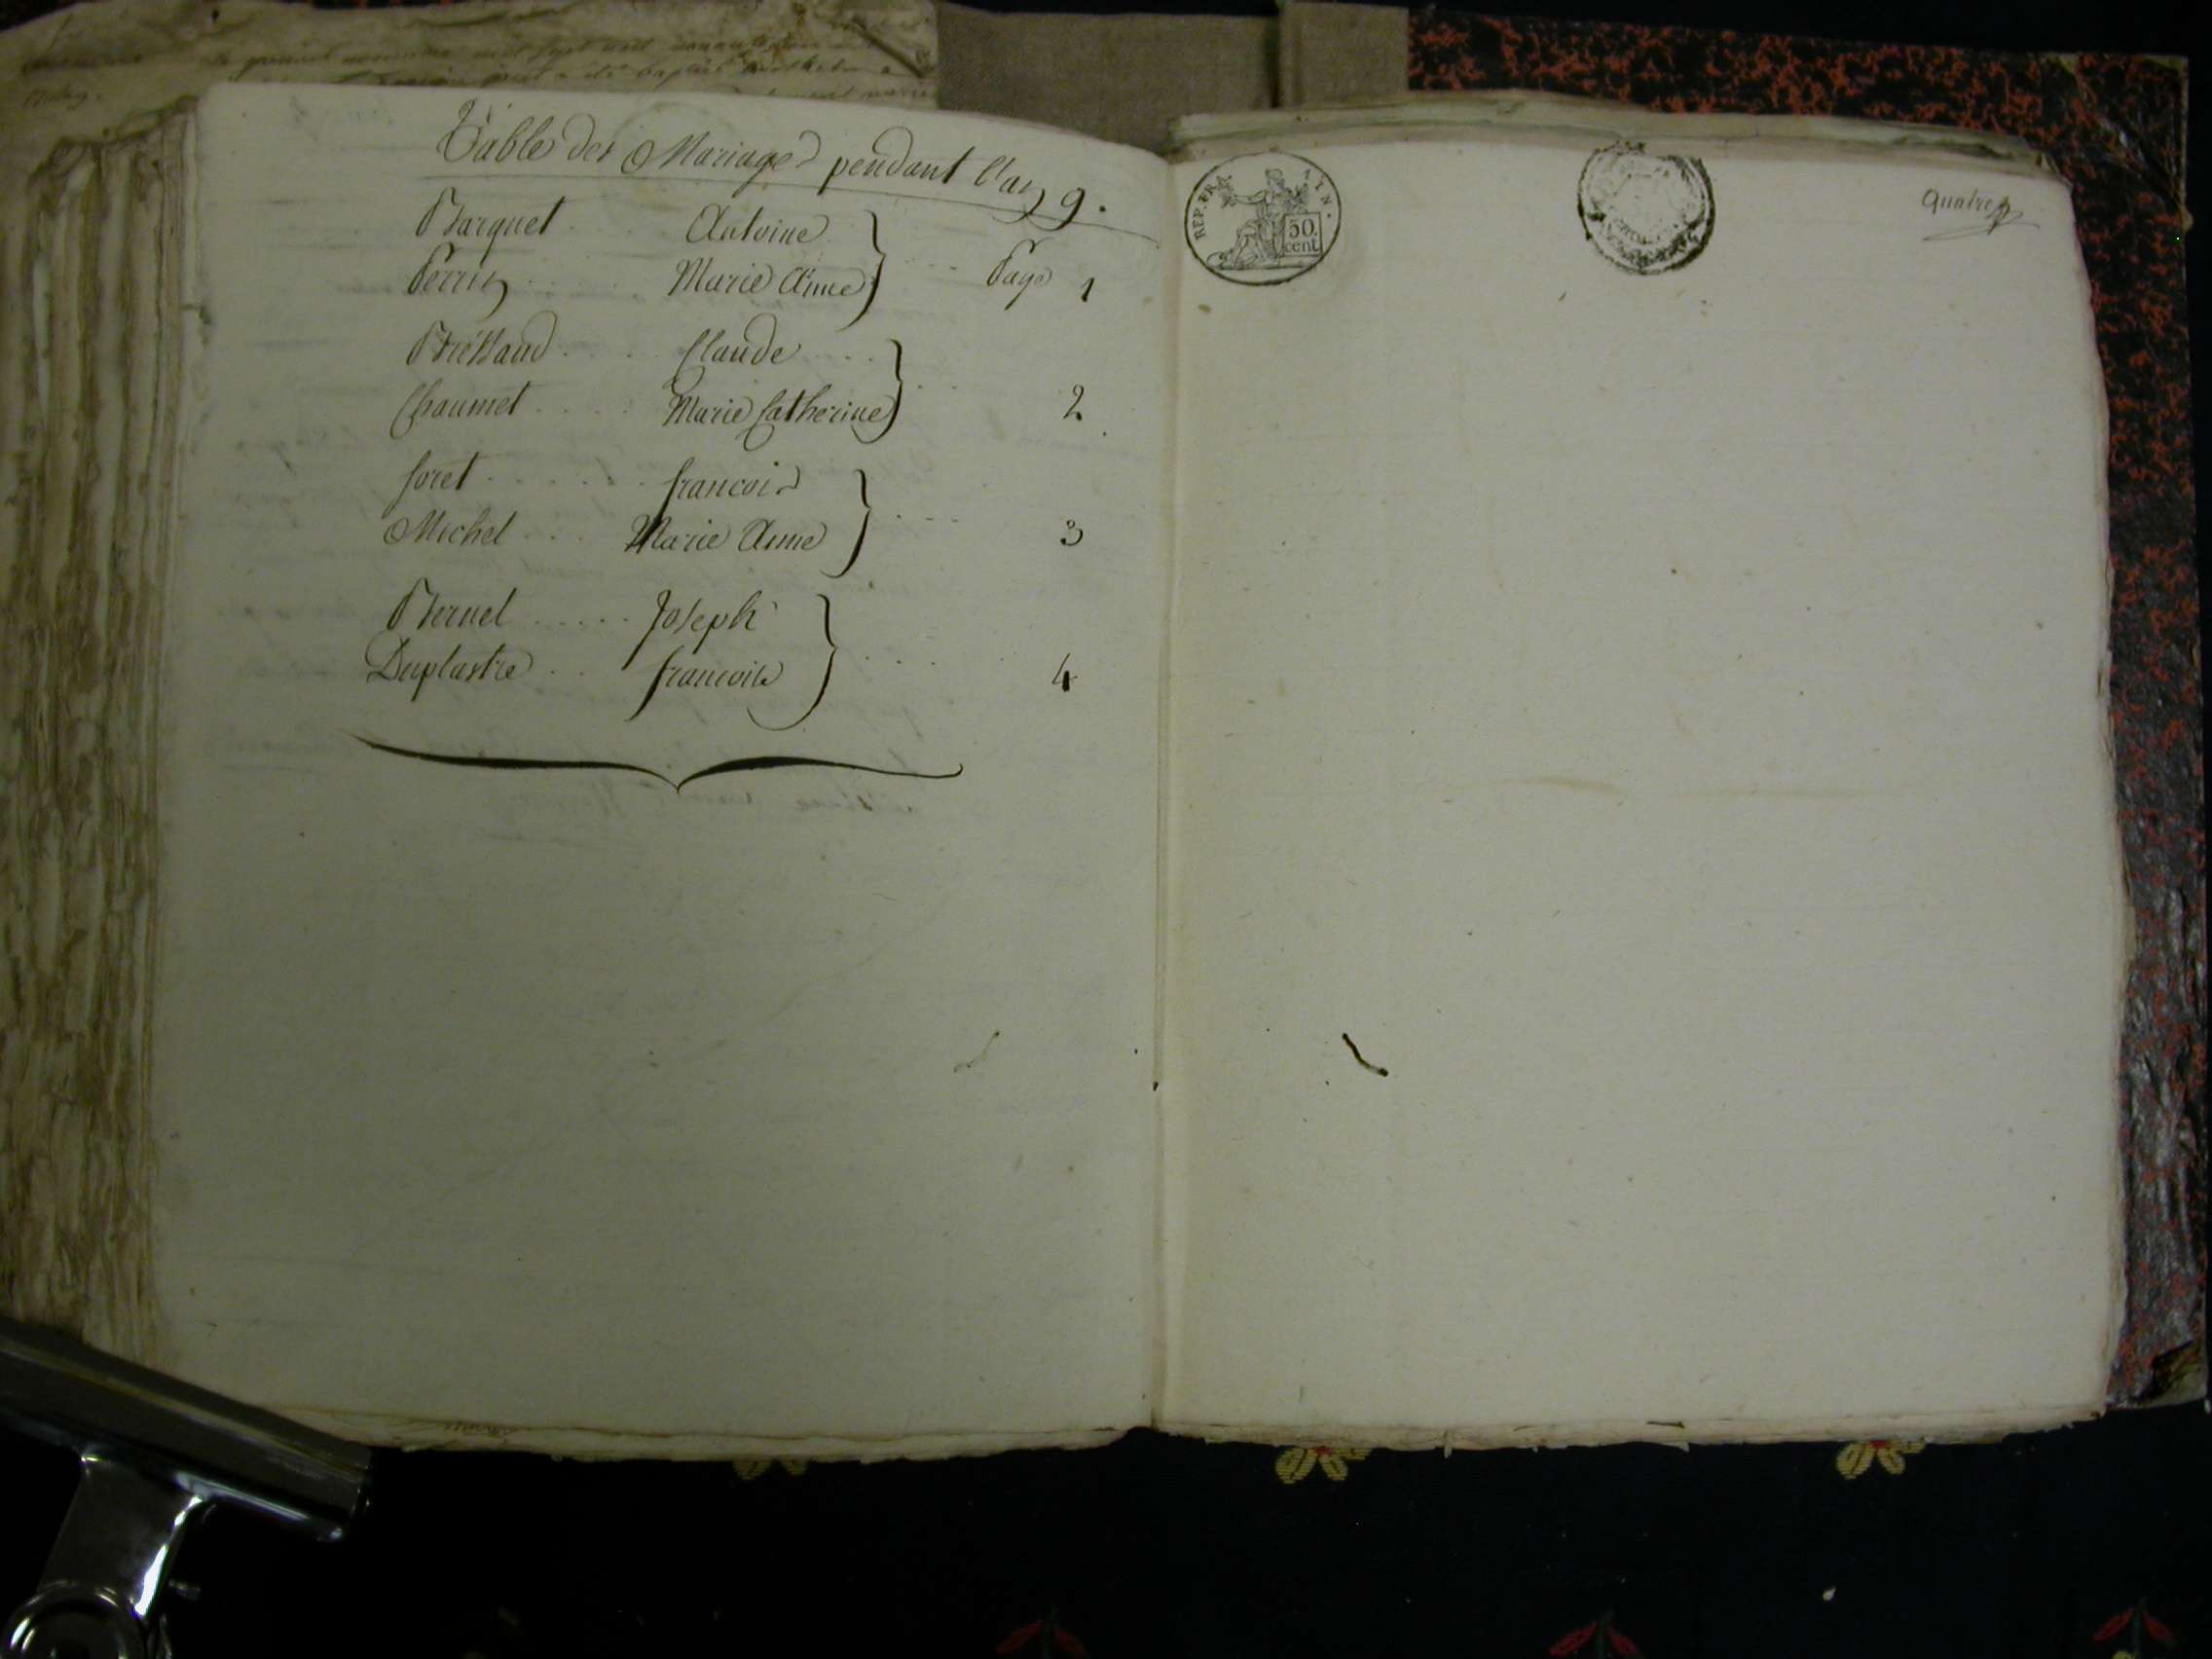 Table des Mariages pendant l'an 9.
Barquet . . Antoine
Perrin . . Marie Anne . . . Page 1
Bressand . . . Claude . . . .
Chaumet . . . . Marie Catherine . . 2
foret . . . . . . francois
Michel . . . Marie Anne . . . 3
Bernel . . . . . Joseph
Duplastre . . francoise . . . . 4
REP. FRA.
50.
cent.
quatre